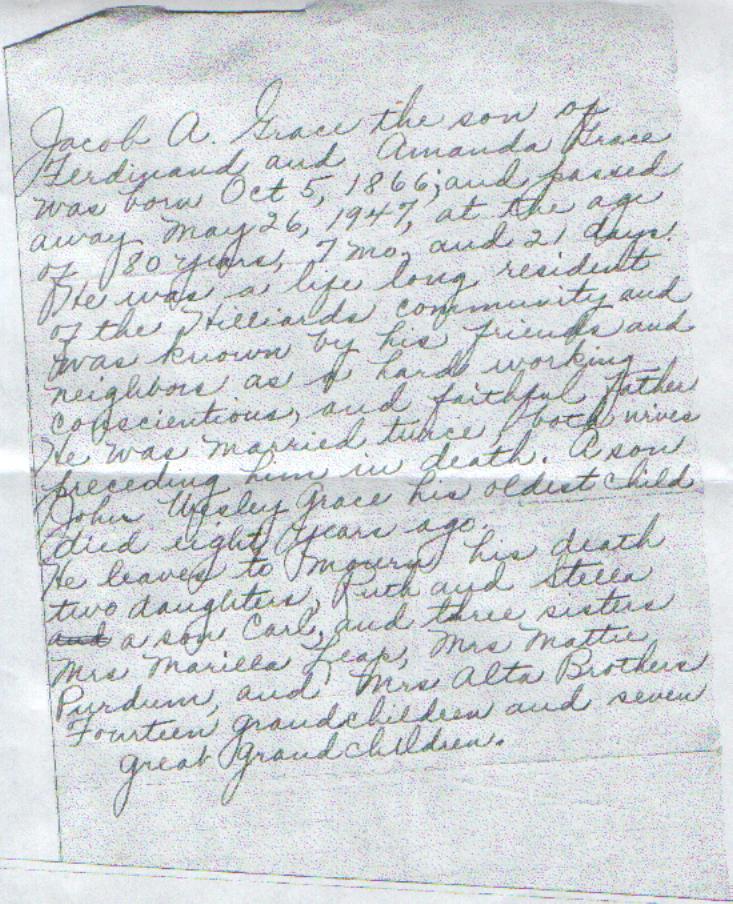 Jacob A. Grace the son of
Ferdinand and Amanda Grace
was born Oct 5, 1866; and passed
away May 26, 1947, at the age
of 80 years, 7 mo, and 21 days.
He was a life long resident
of the Hilliards community and
was known by his friends and
neighbors as a hard working
conscientious, and faithful father
He was married twice, both wives
preceding him in death. A son
John Wesley Grace his oldest child
died eight years ago.
He leaves to mourn his death
two daughters, Ruth and Stella
and a son Carl, and three sisters
Mrs Marilla Leap, Mrs Mattie
Purdum, and Mrs Alta Brothers
Fourteen grandchildren and seven
great grandchildren.